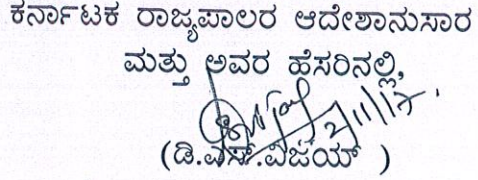 ಕರ್ನಾಟಕ ರಾಜ್ಯಪಾಲರ ಆದೇಶಾನುಸಾರ
ಮತ್ತು ಅವರ ಹೆಸರಿನಲ್ಲಿ,
(ಡಿ.ಎಸ್.ವಿಜಯ್ )